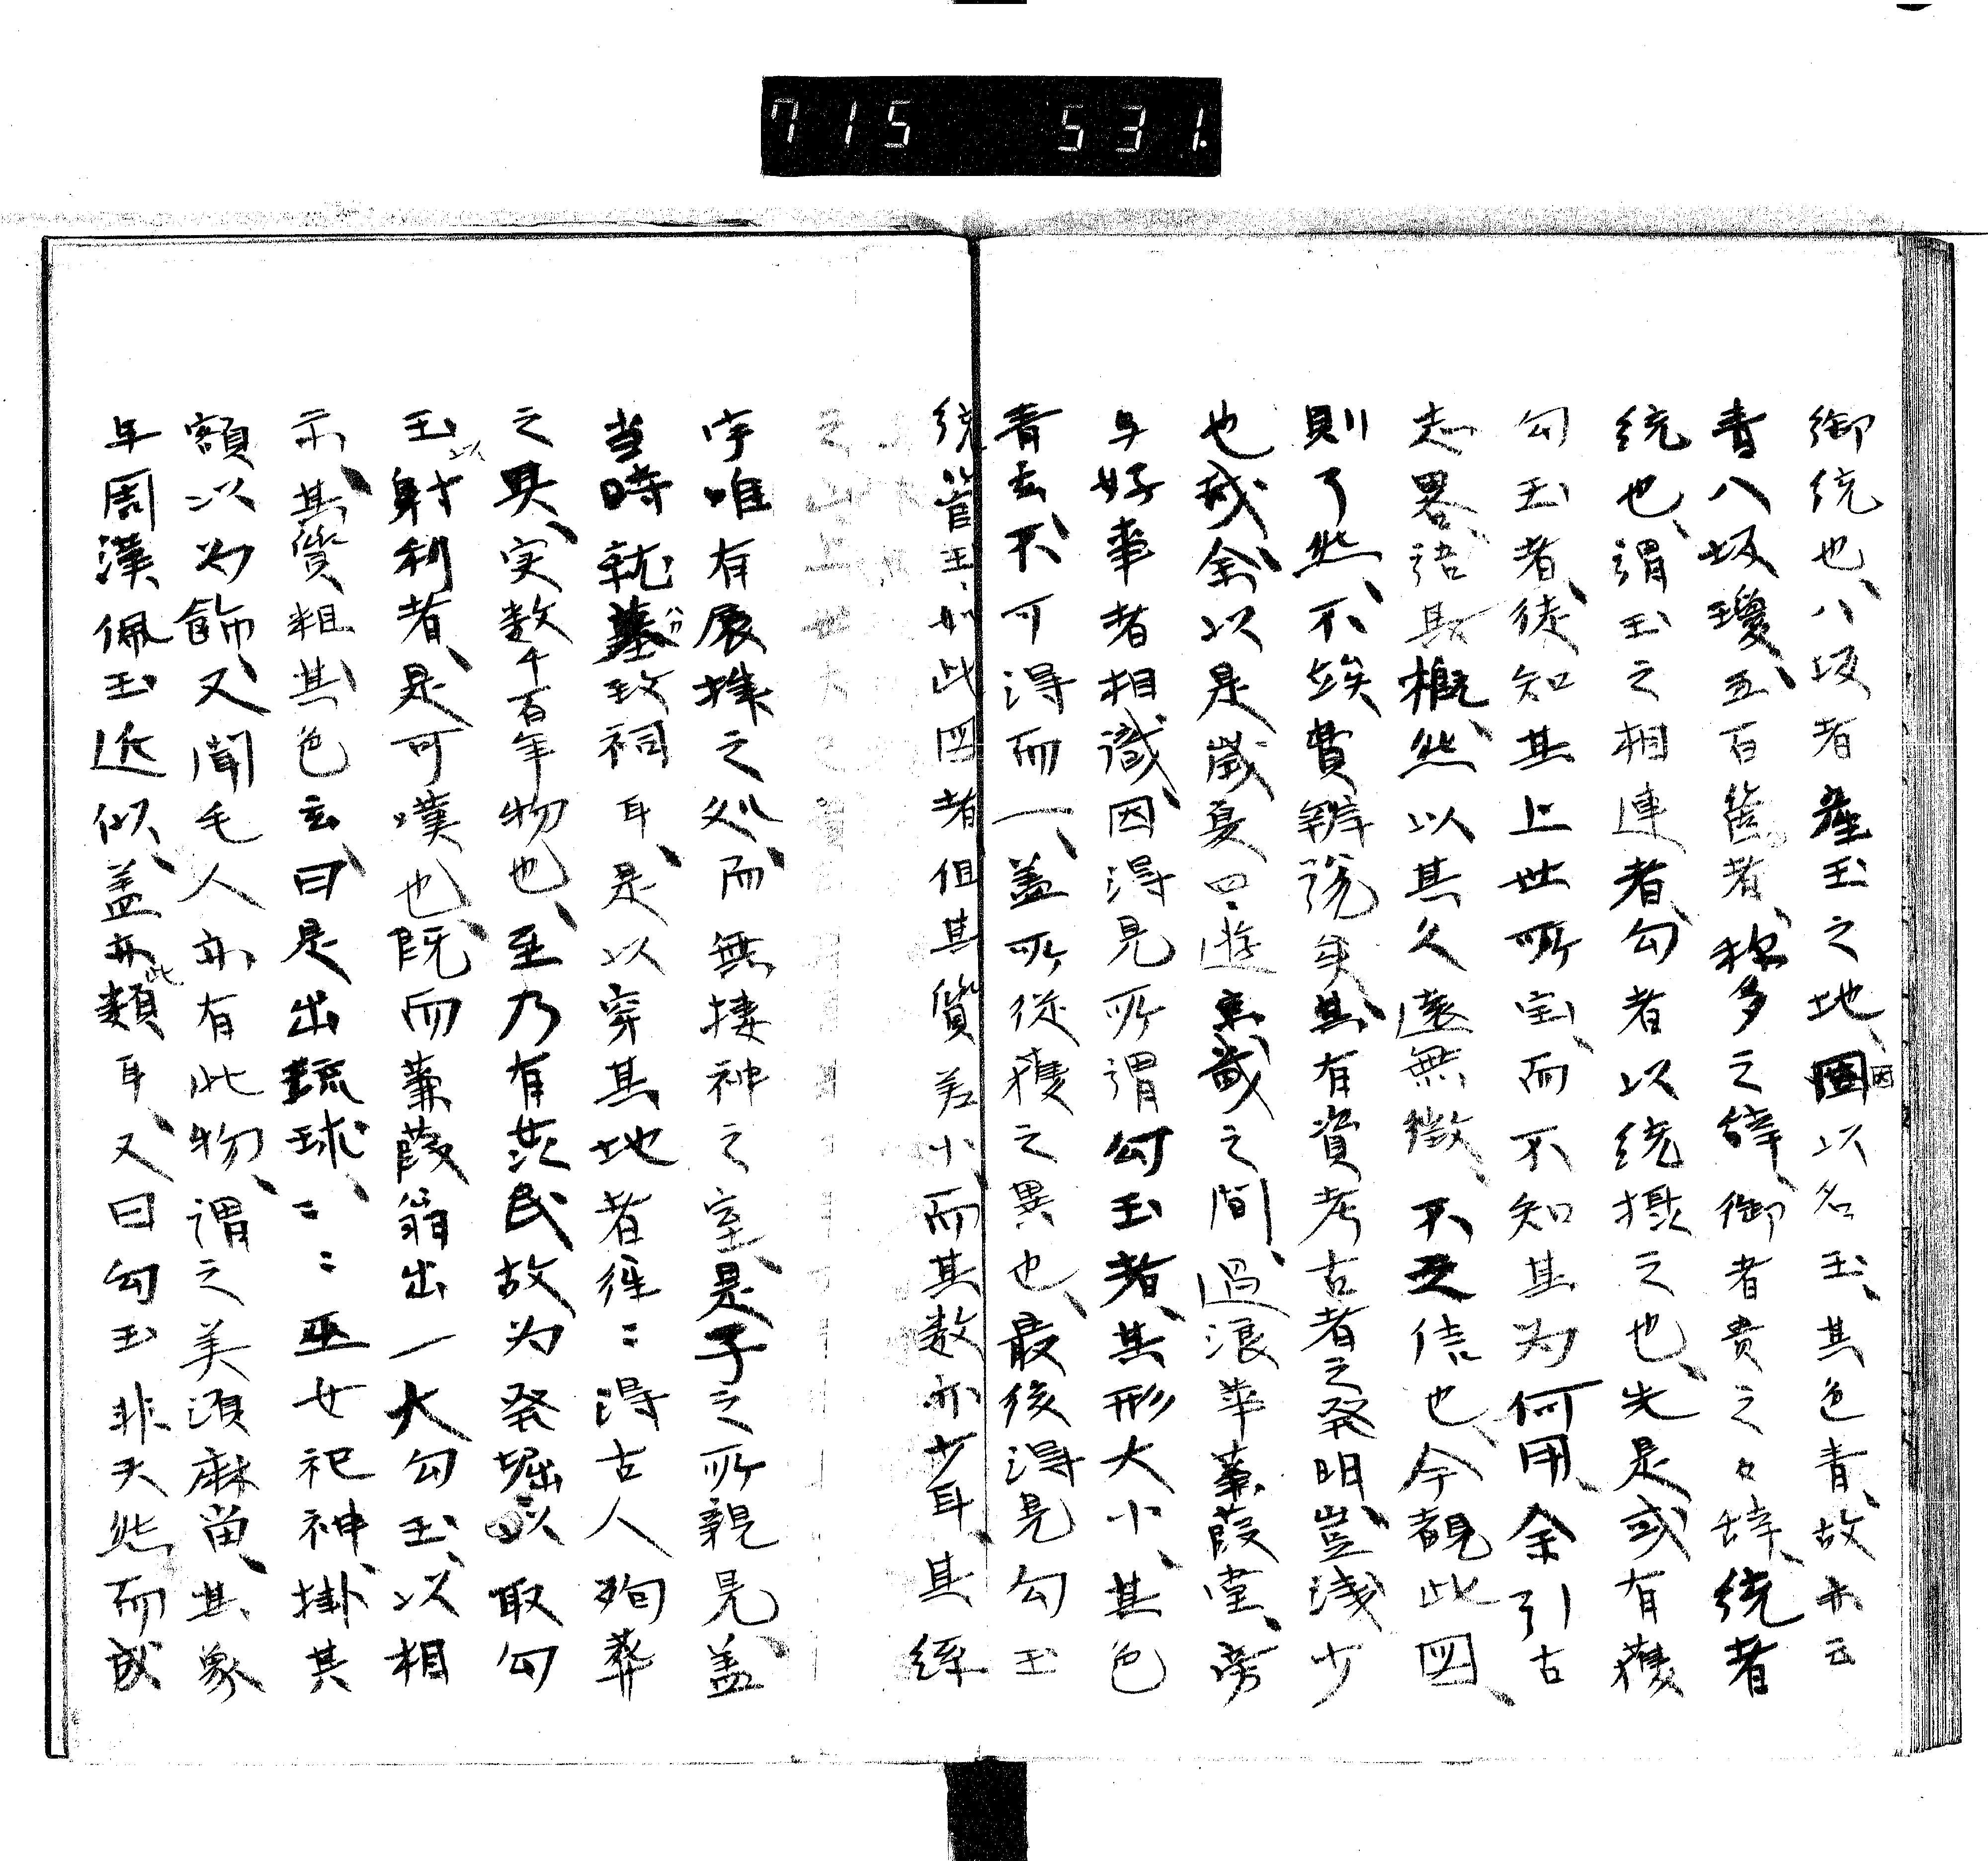 715 531.
御統也、八坂者産玉之地、固因以名玉、其色青、故亦云
青八坂瓊、五百箇者、称多之辞、御者貴之々辞、統者
統也、謂玉之相連者、勾者以統摂之也、先是或有獲
勾玉者、徒知其上世所宝、而不知其为何用、余引古
志畧、語其概然、以其久遠無徴、不之信也、今覩此図、
則了然、不竢費辨説矣、其有資考古者之発明、豈浅少
也哉、余以是歳夏四遊、京畿之間、過浪華蒹葭堂、旁
与好事者相識、因得見所謂勾玉者、其形大小、其色
青玄、不可得而一、蓋所従獲之異也、最後得見勾玉
統管玉、如此図者但其質差小、而其数亦少耳、其経
宇唯有展拝之処、而無棲神之室、是予之所親見、蓋
当時就墓攷祠耳、是以穿其地者往〻得古人殉葬
之具、実数千百年物也、至乃有茨民故为発堀以取勾
玉以射利者、是可嘆也、既而蒹葭翁出一大勾玉、以相
示、其質粗、其色玄、曰是出琉球、〻〻巫女祀神、掛其
額以为飾、又聞毛人亦有此物、謂之美須麻留、其象
与周漢佩玉近似、蓋亦此類耳、又曰勾玉非天然而成